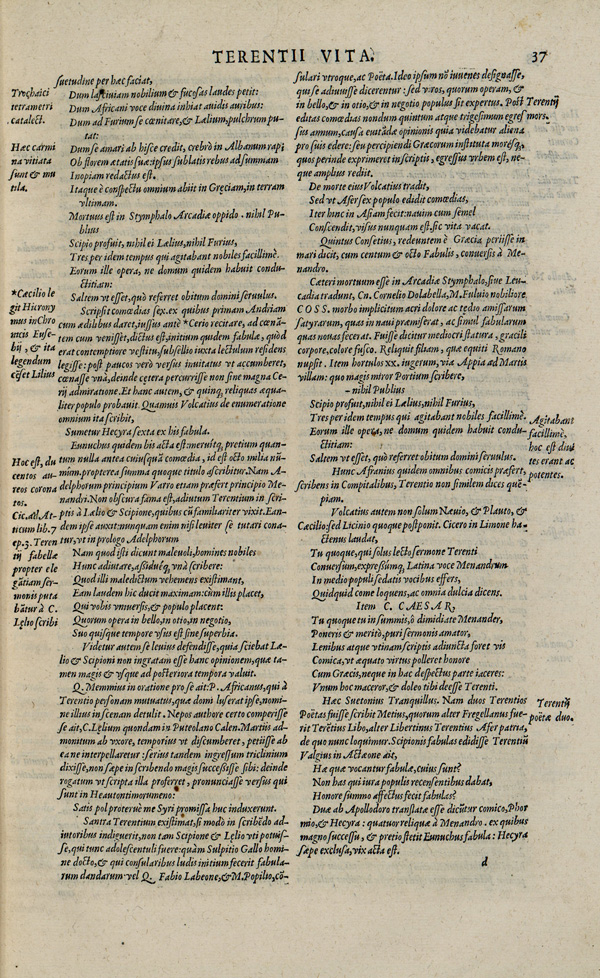 TERENTII VITA.
37
suetudine per hæc faciat,
Dum lasciuiam nobilium & fucosas laudes petit:
Dum Africani voce diuina inhiat auidis auribus:
Dum ad Furium se cœnitare, & Lælium, pulchrum pu-
tat:
Dum se amari ab hisce credit, crebrò in Albanum rapi
Ob florem ætatis suæ: ipsus sublatis rebus ad summam
Inopiam redactus est.
Itaque è conspectu omnium abiit in Greciam, in terram
vltimam.
Mortuus est in Stymphalo Arcadiæ oppido. nihil Pu-
blius
Scipio profuit, nihil ei Lælius, nihil Furius,
Tres per idem tempus qui agitabant nobiles facillimè.
Eorum ille opera, ne domum quidem habuit condu-
ctitiam:
Saltem vt esset, quò referret obitum domini seruulus.
Scripsit comœdias sex. ex quibus primam Andriam
cum ædibus daret, iussus antè *Cerio recitare, ad cœnã-
tem cum venisset, dictus est, initium quidem fabulæ, quòd
erat contemptiore vestitu, subsellio iuxta lectulum residens
legisse: post paucos verò versus inuitatus vt accumberet,
cœnasse vnà, deinde cętera percurrisse non sine magna Ce-
rij admiratione. Et hanc autem, & quinq, reliquas æqua-
liter populo probauit. Quamuis Volcatius de enumeratione
omnium ita scribit,
Sumetur Hecyra sexta ex his fabula.
Eunuchus quidem bis acta est: meruitq, pretium quan-
tum nulla antea cuiusquā comœdia, id est octo milia nū-
miûm. propterea summa quoque titulo ascribitur. Nam A-
delphorum principium Varro etiam præfert principio Me-
nandri. Non obscura fama est, adiutum Terentium in scri-
ptis à Lælio & Scipione, quibus cū familiariter vixit. Ean-
dem ipse auxit: nunquam enim nisi leuiter se tutari cona-
tur, vt in prologo Adelphorum
Nam quod isti dicunt maleuoli, homines nobiles
Hunc adiutare, assiduéq, vnà scribere:
Quod illi maledictum vehemens existimant,
Eam laudem hic ducit maximam: cùm illis placet,
Qui vobis vniuersis, & populo placent:
Quorum opera in bello, in otio, in negotio,
Suo quisque tempore vsus est sine superbia.
Videtur autem se leuius defendisse, quia sciebat Læ-
lio & Scipioni non ingratam esse hanc opinionem, quæ ta-
men magis & vsque ad posteriora tempora valuit.
Q. Memmius in oratione pro se ait: P. Africanus, qui à
Terentio personam mutuatus, quæ domi luserat ipse, nomi-
ne illius in scenam detulit. Nepos authore certo comperisse
se ait, C. Lęlium quondam in Puteolano Calen. Martiis ad-
monitum ab vxore, temporius vt discumberet, petiisse ab
ea ne interpellaretur: serius tandem ingressum triclinium
dixisse, non sæpe in scribendo magis successisse sibi: deinde
rogatum vt scripta illa proferret, pronunciasse versus qui
sunt in Heautontimorumeno:
Satis pol proteruè me Syri promissa huc induxerunt.
Santra Terentium existimat, si modò in scribẽdo ad-
iutoribus indiguerit, non tam Scipione & Lęlio vti potuis-
se, qui tunc adolescentuli fuere: quàm Sulpitio Gallo homi-
ne docto, & qui consularibus ludis initium fecerit fabula-
rum dandarum vel Q. Fabio Labeone, & M. Popilio, cō-
Trochaici
tetrametri
catalect.
Hæc carmi
na vitiata
sunt & mu
tila.
*Cæcilio le
git Hierony
mus in Chro
nicis Euse-
bij, & ita
legendum
cẽset Lilius
Hoc est, du
centos au-
reos corona
tos.
Cic. ad. At-
ticum lib. 7
ep. 3. Teren
tij fabellæ
propter ele
gātiam ser-
monis puta
bātur à C.
Lęlio scribi
sulari vtroque, ac Poëta. Ideo ipsum nō iuuenes designasse,
qui se adiuuisse dicerentur: sed viros, quorum operam, &
in bello, & in otio, & in negotio populus sit expertus. Post
editas comœdias nondum quintum atque trigesimum egres
sus annum, causa euitādæ opinionis qua videbatur aliena
pro suis edere: seu percipiendi Græcorum instituta moresq,
quos perinde exprimeret in scriptis, egressus vrbem est, ne-
que amplius rediit.
De morte eius Volcatius tradit,
Sed vt Afer sex populo edidit comœdias,
Iter hinc in Asiam fecit: nauim cum semel
Conscendit, visus nunquam est, sic vita vacat.
Quintus Consetius, redeuntem è Græcia periisse in
mari dicit, cum centum & octo Fabulis, conuersis à Me-
nandro.
Cæteri mortuum esse in Arcadia Stymphalo, siue Leu-
cadia tradunt, Cn. Cornelio Dolabella, M. Fuluio nobiliore
COSS. morbo implicitum acri dolore ac tędio amissarum
satyrarum, quas in naui præmiserat, ac simul fabularum
quas nouas fecerat. Fuisse dicitur mediocri statura, gracili
corpore, colore fusco. Reliquit filiam, quæ equiti Romano
nupsit. Item hortulos xx. iugerum, via Appia ad Martis
villam: quo magis miror Portium scribere,
– nihil Publius
Scipio profuit, nihil ei Lælius, nihil Furius,
Tres per idem tempus qui agitabant nobiles facillimè.
Eorum ille opera, ne domum quidem habuit condu-
ctitiam:
Saltem vt esset, quò referret obitum domini seruulus.
Hunc Afranius quidem omnibus comicis præfert,
scribens in Compitalibus, Terentio non similem dices quē-
piam.
Volcatius autem non solum Næuio, & Plauto, &
Cæcilio: sed Licinio quoque postponit. Cicero in Limone ha-
ctenus laudat,
Tu quoque, qui solus lecto sermone Terenti
Conuersum, expressumq, Latina voce Menandrum
In medio populi sedatis vocibus effers,
Quidquid come loquens, ac omnia dulcia dicens.
Item C. CAESAR,
Tu quoque tu in summis, ô dimidiate Menander,
Poneris & meritò, puri sermonis amator,
Lenibus atque vtinam scriptis adiuncta foret vis
Comica, vt æquato virtus polleret honore
Cum Græcis, neque in hac despectus parte iaceres:
Vnum hoc maceror, & doleo tibi deesse Terenti.
Hæc Suetonius Tranquillus. Nam duos Terentios
Poëtas fuisse scribit Metius, quorum alter Fregellanus fue-
rit Terētius Libo, alter Libertinus Terentius Afer patria,
de quo nunc loquimur. Scipionis fabulas edidisse Terentiū
Valgius in Actæone ait,
Hæ quæ vocantur fabulæ, cuius sunt?
Non has qui iura populis recensentibus dabat,
Honore summo affectus fecit fabulas?
Duæ ab Apollodoro translatæ esse dicūtur comico, Phor
mio, & Hecyra: quatuor reliquæ à Menandro. ex quibus
magno successu, & pretio stetit Eunuchus fabula: Hecyra
sæpe exclusa, vix acta est.
d
Terentij
mors.
Agitabant
facillimè.
hoc est diui
tes erant ac
potentes.
Terentij
poëtæ duo.